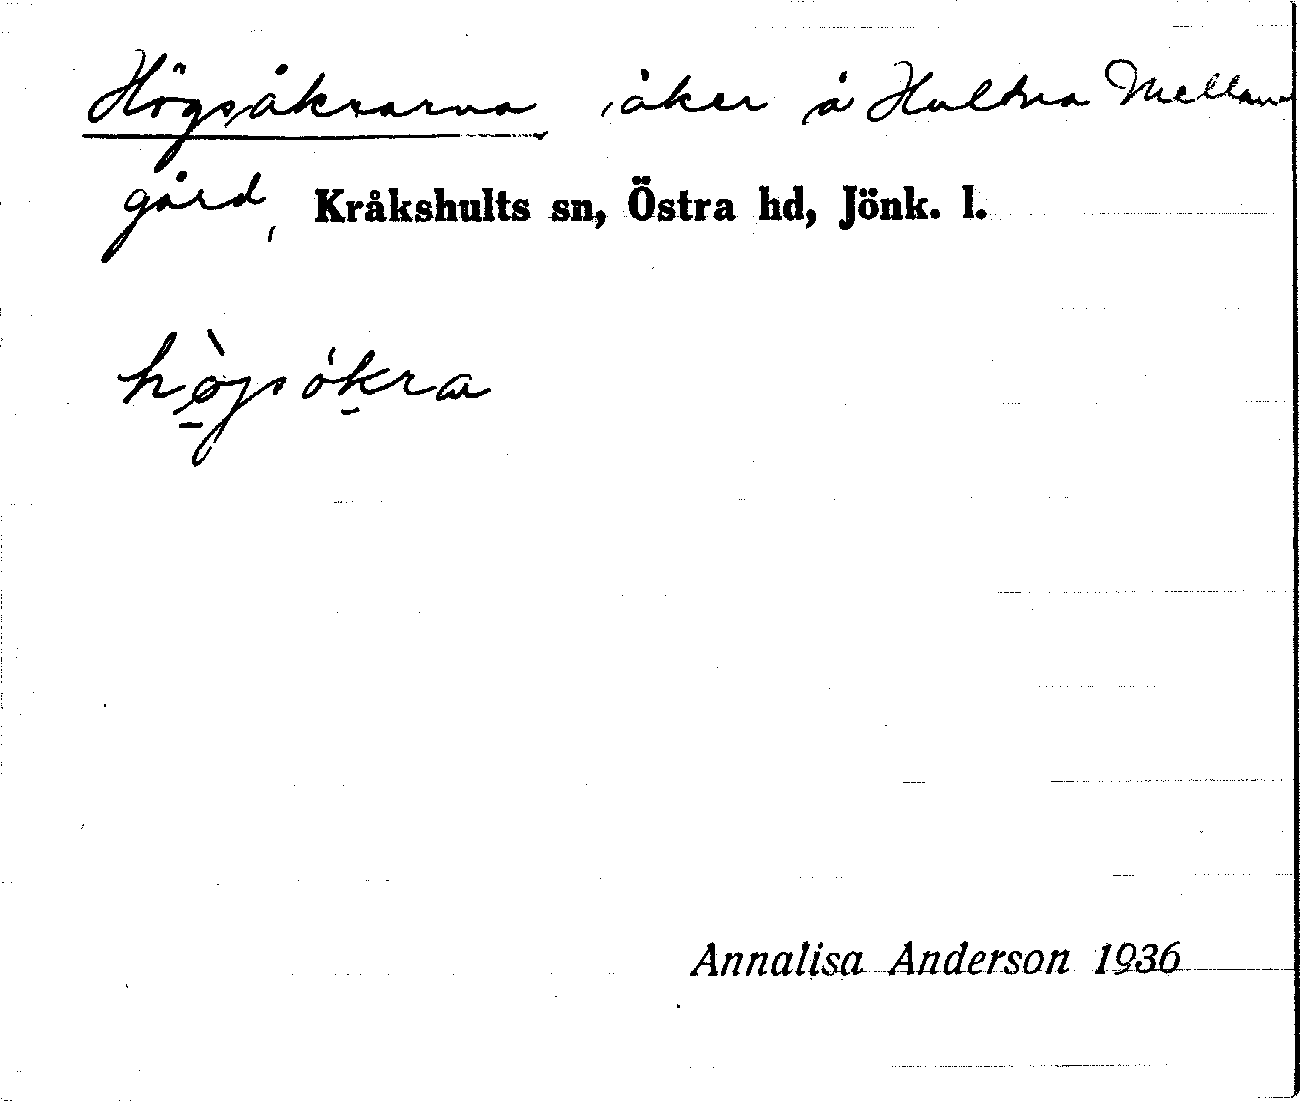 Högsåkrarna, åker å Hultna Mellan
gård, Kråkshults sn, Östra hd, Jönk. l.
Annalisa Anderson 1936